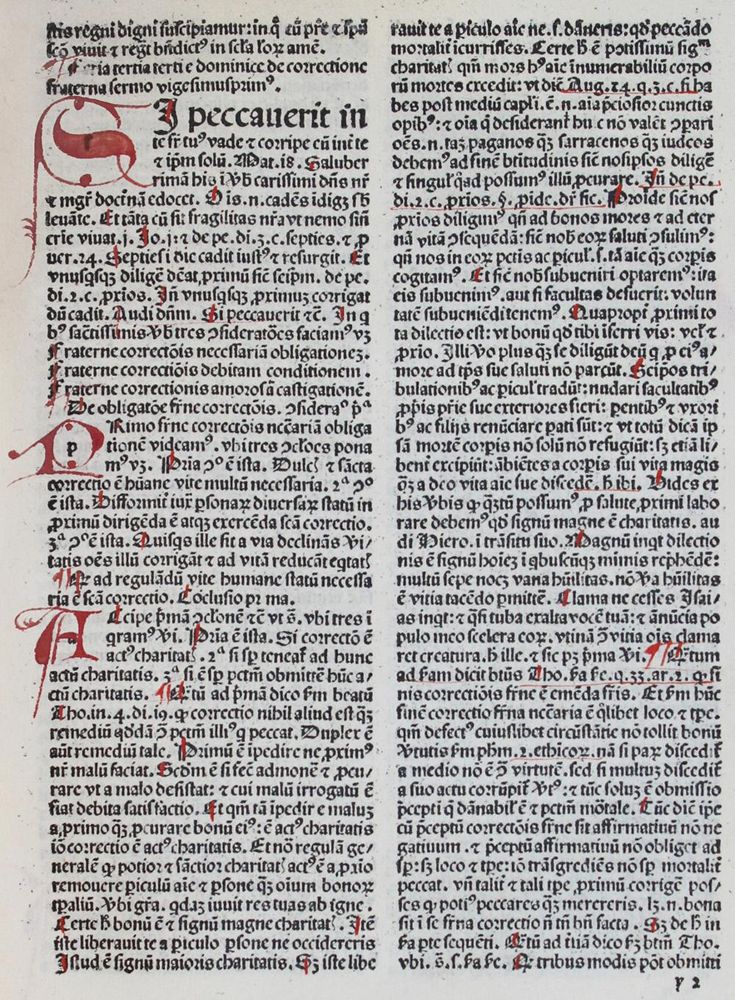 ſtis regni digni ſuſcipiamur: in q̇ cū pr̄e ⁊ ſpū
ſcō viuit ⁊ regt̄ bn̄dictꝰ in ſcl̄a ſc̄lor̄ amē.
Feria tertia tertie dominice de correctione
fraterna ſermo vigeſimuſprimꝰ.
SI peccauerit in
te fr̄ tuꝰ vade ⁊ corripe eū int̄ te
⁊ ip̄m ſolū. Mat. 18. Saluber
rimā his v̄b̄ cariſſimi dn̄s nr̄
⁊ mgr̄ doctrinā edocet.
leuāte. Et tāta cū ſit fragilitas nr̄a vt nemo ſin̄
crie viuat. j. Jo. j: ⁊ de pe. di. 3. c. ſepties. ⁊ ꝓ
uer. 24. Septieſ i die cadit iuſtꝰ ⁊ reſurgit. Et
vnuſqſqꝫ diligē dēat, primū ſic̄ ſeip̄m. de pe.
di. 2. c. ꝓxios. In̄ vnuſqſqꝫ ꝓximuꝫ corrigat
dū cadit. Audi dn̄m. Si peccauerit ⁊c̄. In q
bꝰ ſac̄tiſſimis v̄b̄ tres ↄſideratōes faciamꝰ vꝫ
Fraterne correctōis neceſſariā obligationeꝫ.
Fraterne correctōis debitam conditionem.
Fraterne correctionis amoroſā caſtigationē.
De obligatōe fr̄ne correctōis. ↄſidera° pᵃ
PRimo fr̄ne correctōis nc̄eariā obliga
tionē videamꝰ. vbi tres ↄcl̄oes pona
mꝰ vꝫ. Pria ↄ° ē iſta. Dulcꝭ ⁊ ſācta
correctio ē hūane vite multū neceſſaria. 2ᵃ ↄ°
ē iſta. Difformit̄ iux̄ ꝑſonar̄ diuerſar̄ ſtatū in
ꝓximū dirigēda ē atqꝫ exercēda ſcā correctio.
3ᵃ ↄ° ē iſta. Quiſqs ille ſit a via declinās v̄i/
tatis oēs illū corrigāt ⁊ ad vitā reducāt
Qꝛ ad regulādū vite humane ſtatū neceſſa
ria ē ſcā correctio. Cōcluſio pri ma.
ACcipe pͥmā ↄcl̄onē ⁊ ē vt s̄. vbi tres ī
qramꝰ v̄i. Pria ē iſta. Si correctō ē
actꝰ charitatꝭ. 2ᵃ ſi ſp̄ teneat̄ ad hunc
actū charitatis. 3ᵃ ſi ē ſp̄ pctm̄ obmitt̄e hūc a/
ctū charitatis. Q̄tū ad pͥmā dico ẜm beatū
Tho. in. 4. di. 19. ꝙ correctio nihil aliud eſt qꝫ
remediū qd̄dā ↄ̄ pctm̄ illiꝰ q peccat. Duplex ē
aūt remediū tale. Primū ē īpedire ne ꝓximꝰ
nr̄ malū faciat. Scd̄m ē ſi fec̄ admonē ⁊ ꝓcu/
rare vt a malo deſiſtat: ⁊ cui malū irrogatū ē
fiat debita ſatiſfactio. Et qm̄ tā īpedir e maluꝫ
a ꝓximo qꝫ ꝓcurare bonū eiꝰ: ē actꝰ charitatis
iō correctio ē actꝰ charitatis. Et nō regulā ge/
neralē ꝙ potior ⁊ ſāctior charitatꝭ actꝰ ē a ꝓxio
remouere ꝑiculū aīe ⁊ ꝑſone qꝫ oīum bonor̄
tp̄aliū. Vbi gr̄a. qdaꝫ iuuit res tuas ab igne.
Certe h̄ bonū ē ⁊ ſignū magne charitatꝭ. Itē
iſte liberauit te a ꝑiculo ꝑſone ne occidereris
Iſtud ē ſignū maioris charitatis. Sꝫ iſte libe
rauit te a ꝑiculo aīe ne. ſ. dāneris: qd̄ peccādo
mortalit̄ īcurriſſes. Certe h̄ ē potiſſimū ſignū
charitatꝭ qm̄ mors hꝰ aīe īnumerabiliū corpo
rū mortes excedit: vt dic̄ Aug. 24. q. 3. c. ſi ha
bes poſt mediū capl̄i. ē. n. aīa p̄cioſior cunctis
opibꝰ: ⁊ oīa q̄ deſiderant̄ huic nō valēt ↄꝑari
oēs. n. taꝫ paganos qꝫ ſarracenos qꝫ iudeos
debemꝰ ad finē btītudinis ſic̄ noſipſos diligē
⁊ ſingulꝭ qd̄ poſſumꝰ illū ꝓcurare. Jn̄ de pe.
di. 2. c. ꝓxios. §. ꝓide. dr̄ ſic. Proīde ſic̄ nos
ꝓxios diligimꝰ qn̄ ad bonos mores ⁊ ad eter
nā vitā ↄſequēdā: ſic̄ nob̄ eor̄ ſaluti ↄſulimꝰ:
qn̄ nos in eor̄ pctis ac ꝑicul̄. ſ. tā aīe qꝫ corꝑis
cogitamꝰ. Et ſic̄ nob̄ ſubueniri optarem̄ꝰ: ita
eis ſubuenim̄ꝰ. aut ſi facultas defuerit: volun
tatē ſubueniēdi tenemꝰ. Quapropt̄ ꝓximi to
ta dilectio eſt: vt bonū qd̄ tibi īferri vis: velꝭ ⁊
ꝓxio. Illi v̄o plus qꝫ ſe diligūt deū q ꝓ eiꝰ a/
more ad tp̄s ſue ſaluti nō parcūt. Seipos tri/
bulationibꝰ ac ꝑicul̄ tradūt: nudari facultatibꝰ
ꝓpͥis pr̄ie ſue exteriores fieri: parentibꝰ ⁊ vxori
bꝰ ac filijs renūciare pati ſūt: ⁊ vt totū dicā ip
ſā mortē corꝑis nō ſolū nō refugiūt: ſꝫ etiā li/
benter̄ excipiūt:
qꝫ a deo vita aīe ſue diſcedē. h̄ ibi. Vides ex
his v̄bis ꝙ qꝫtū poſſumꝰ ꝓ ſalute ꝓximi labo
rare debemꝰ qd̄ ſignū magne ē charitatis. au
di Hiero. ī trāſitu ſuo. Magnū inqt dilectio
nis ē ſignū hoīeꝫ ī qbuſcūqꝫ mīmis rep̄hēdē:
multū ſepe nocꝫ vana hūilitas. nō v̄a hūilitas
ē vitia tacēdo ꝑmitt̄e. Clama ne ceſſes Iſai/
as inqt: ⁊ q̄ſi tuba exalta vocē tuā: ⁊ ānūcia po
pulo meo ſcelera eor̄. vtinā ↄ̄ vitia oīs clama
ret creatura. h̄ ille. ⁊ ſic pꝫ pͥma v̄i. Q̄tum
ad ẜam dicit btūs Tho. ẜa ẜe. q. 33. ar. 2. ꝙ fi
nis correctōis fr̄ne ē emēda fr̄is. Et ẜm hūc
finē correctio fr̄na nc̄earia ē qͥlibet loco ⁊ tp̄e.
qm̄ defectꝰ cuiuſlibet circūſtātie nō tollit bonū
v̄tutis ẜm phm̄. 2. ethicor̄. nā ſi par̄ diſcedit̄
a medio nō ē ↄ̄ virtutē. ſed ſi multuꝫ diſcedit̄
a ſuo actu corrūpit̄ v̄tꝰ: ⁊ tūc ſoluꝫ ē obmiſſio
p̄cepti q̄ dānabil̄ ē ⁊ pctm̄ mōtale. Tūc dic̄ ip̄e
cū p̄ceptū correctōis fr̄ne ſit affirmatiuū nō ne
gatiuum. ⁊ p̄ceptū affirmatiuū nō obliget ad
ſp̄: ſꝫ loco ⁊ tp̄e: iō trāſgrediēs nō ſp̄ mortalit̄
peccat. vn̄ talit̄ ⁊ tali tp̄e ꝓximū corrigē poſ/
ſes ꝙ potiꝰ peccares qꝫ merereris. lꝫ. n. bona
ſit ī ſe fr̄na correctio n̄ tn̄ bn̄ facta. Sꝫ de h̄ in
ẜa pte ſequēti. Q̄tū ad t̄iā dico ẜꝫ btm̄ Tho.
vbi. s̄. ẜa ẜe. Qꝛ tribus modis pōt obmitti
y 2